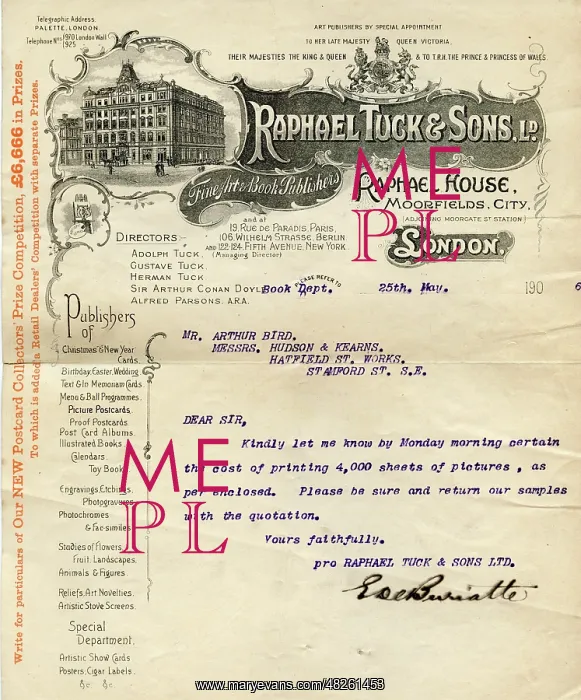 Telegraphic Address.
PALETTE, LONDON.
Telephone Nos 1970 London Wall
1925
ART PUBLISHERS BY SPECIAL APPOINTMENT
TO HER LATE MAJESTY QUEEN VICTORIA,
THEIR MAJESTIES THE KING & QUEEN & TO T.R.H. THE PRINCE & PRINCESS OF WALES
RAPHAEL TUCK & SONS, LD.
Fine Art & Book Publishers
RAPHAEL HOUSE,
MOORFIELDS, CITY,
(ADJOINING MOORGATE ST STATION)
LONDON.
and at
19, RUE DE PARADIS, PARIS,
106, WILHELM STRASSE, BERLIN
AND 122-124, FIFTH AVENUE, NEW YORK.
(Managing Director)
DIRECTORS
ADOLPH TUCK,
GUSTAVE TUCK,
HERMAN TUCK,
SIR ARTHUR CONAN DOYLE
ALFRED PARSONS, A.R.A.
Book Dept.
IN CASE REFER TO
25th. May. 190 6
Write for particulars of Our NEW Postcard Collectors' Prize Competition, £6,666 in Prizes.
To which is added a Retail Dealers' Competition with separate Prizes.
Publishers
of
Christmas & New Year
Cards.
Birthday, Easter, Wedding
Text & In Memoriam Cards
Menu & Ball Programmes.
Picture Postcards.
Proof Postcards.
Post Card Albums
Illustrated Books
Calendars.
Toy Book
Engravings, Etchings
Photogravures
Photochromes
& Fac-similes
Studies of Flowers,
Fruit, Landscapes,
Animals & Figures.
Reliefs, Art Novelties.
Artistic Stove Screens.
Special
Department.
Artistic Show Cards
Posters, Cigar Labels.
&c &c
MR. ARTHUR BIRD.
MESSRS. HUDSON & KEARNS.
HATFIELD ST. WORKS.
STAMFORD ST. S.E.
DEAR SIR,
Kindly let me know by Monday morning certain
the cost of printing 4,000 sheets of pictures , as
per enclosed. Please be sure and return our samples
with the quotation.
Yours faithfully.
pro RAPHAEL TUCK & SONS LTD.
ME
PL
ME
PL
www.maryevans.com/48261453